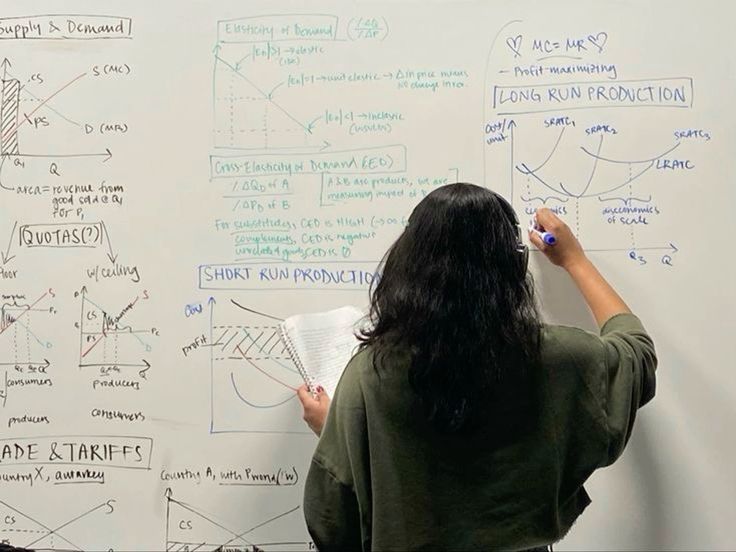 Supply & Demand
CS
S (MC)
PS
D (MB)
Q1
Q
area = revenue from
good sold @ Q1
for P1
QUOTAS(?)
floor
w/ceiling
surplus
S
D
CS
PS
S
D
Q
consumers
producers
producers
consumers
ADE & TARIFFS
country X, autarkey
CS
S
Country A, with Pworld (w)
CS
Elasticity of Demand
%ΔQ
%ΔP
|ED|>1 → elastic
|ED|=1 → unit elastic → Δ in price means
no change in rev.
|ED|<1 → inelastic
Cross-Elasticity of Demand (ED)
%ΔQD of A
%ΔPD of B
A & B are products, we are
measuring impact of
For substitutes, CED is HIGH
complements, CED is negative
unrelated goods, CED is 0
SHORT RUN PRODUCTION
Cost
profit
MC = MR
- Profit-maximizing
LONG RUN PRODUCTION
Cost/
unit
SRATC1
SRATC2
SRATC3
LRATC
diseconomies
of scale
Q3
Q